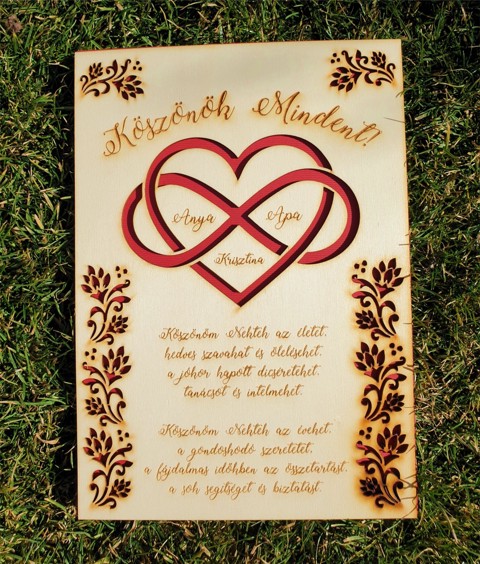 Köszönök Mindent!
Anya Apa
Krisztina
Köszönöm Nektek az életet,
kedves szavakat és öleléseket,
a jókor kapott dicséreteket,
tanácsot és intelmeket.
Köszönöm Nektek az éveket,
a gondoskodó szeretetet,
a fájdalmas időkben az összetartást,
a sok segítséget és bíztatást.